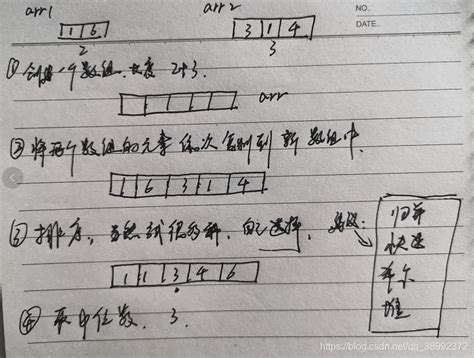 arr1 arr2 NO.
1 6 3 1 4 DATE.
2 3
① 创建一个数组.长度 2+3.
arr
② 将两个数组的元素依次复制到新数组中.
1 6 3 1 4
③ 排序, 自己选择, 归并
快速
希尔
堆
1 1 3 4 6
④ 取中位数. 3.
https://blog.csdn.net/qq_38992372